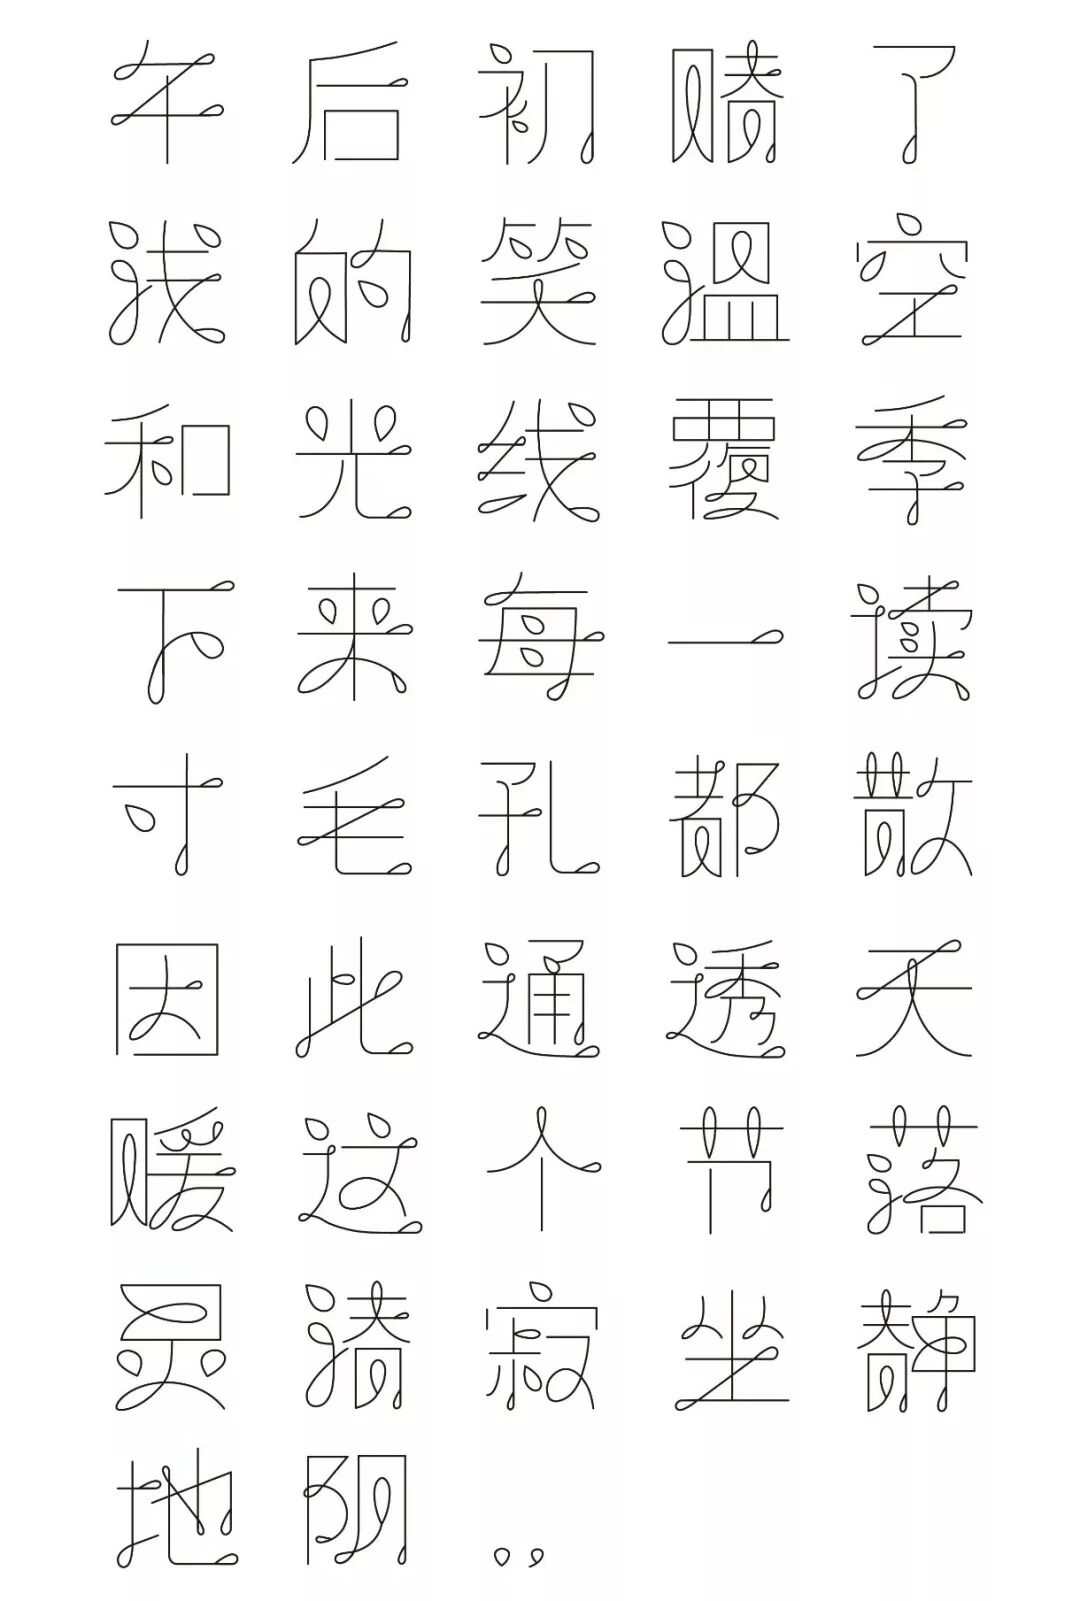 午后初晴了
浅的笑温空
和光线覆季
下来每一读
寸毛孔都散
因此通透天
暖这个节落
灵清寂坐静
地阴。，